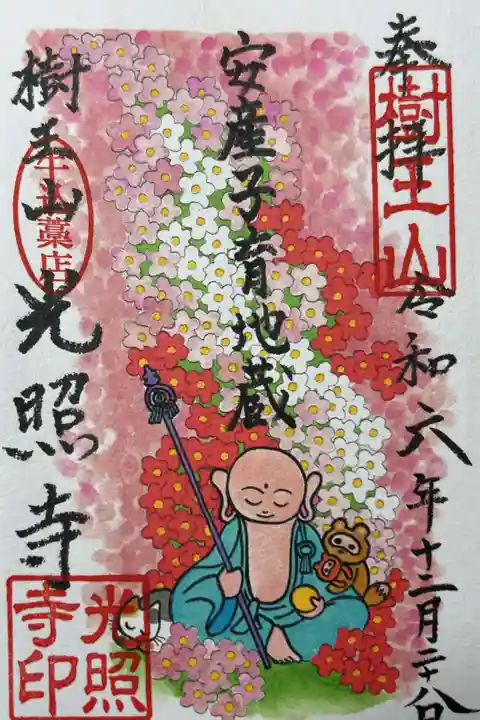 奉拝
樹王山
令和六年十二月二十八日
安産子育地蔵
樹王山
光照寺
牛込藁店
光照
寺印